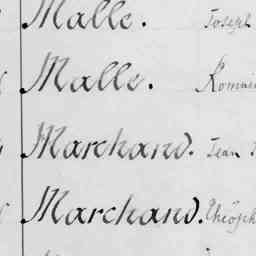 Malle. Joseph
Malle. Romai
Marchand. Jean
Marchand. Théoph